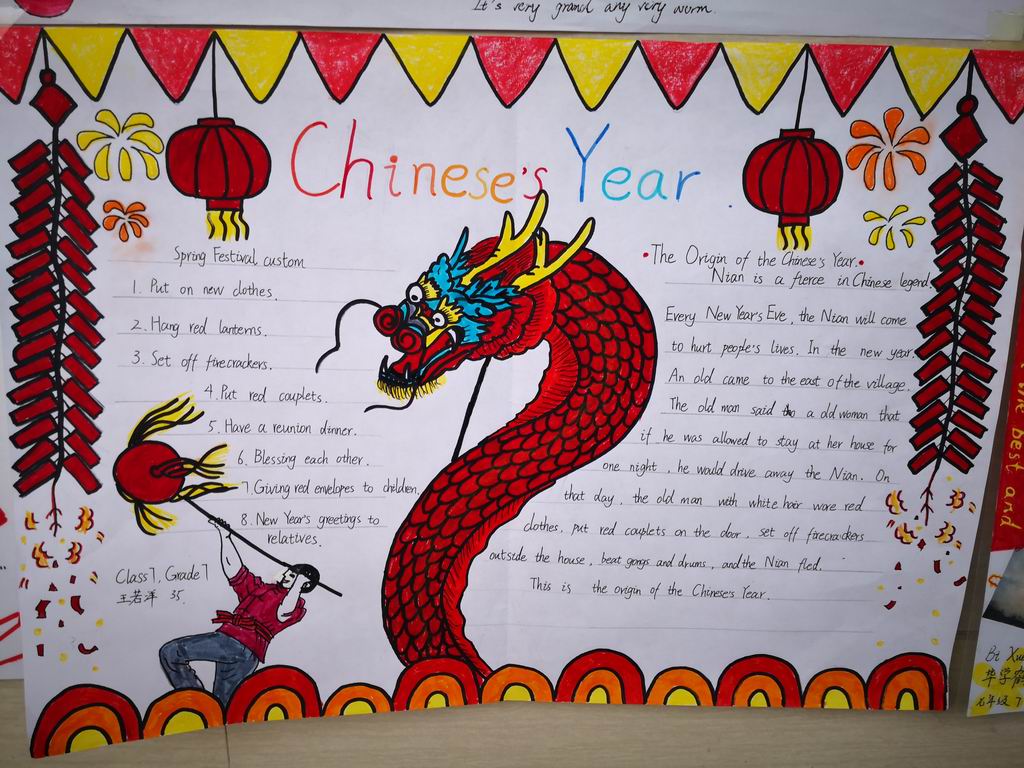 It's very grand any very warm.
Chinese's Year.
Spring Festival custom
1. Put on new clothes.
2. Hang red lanterns.
3. Set off firecrackers.
4. Put red couplets.
5. Have a reunion dinner.
6. Blessing each other.
7. Giving red envelopes to children.
8. New Year's greetings to
relatives.
Class 7, Grade 7
王若洋 35.
•The Origin of the Chinese's Year.•
Nian is a fierce in Chinese legend
Every New Year's Eve, the Nian will come
to hurt people's lives. In the new year.
An old came to the east of the village.
The old man said to a old woman that
if he was allowed to stay at her house for
one night, he would drive away the Nian. On
that day, the old man with white hair wore red
clothes, put red couplets on the door, set off firecrackers
outside the house, beat gongs and drums, and the Nian fled.
This is the origin of the Chinese's Year.
best and
Bi Xu
七年级 7